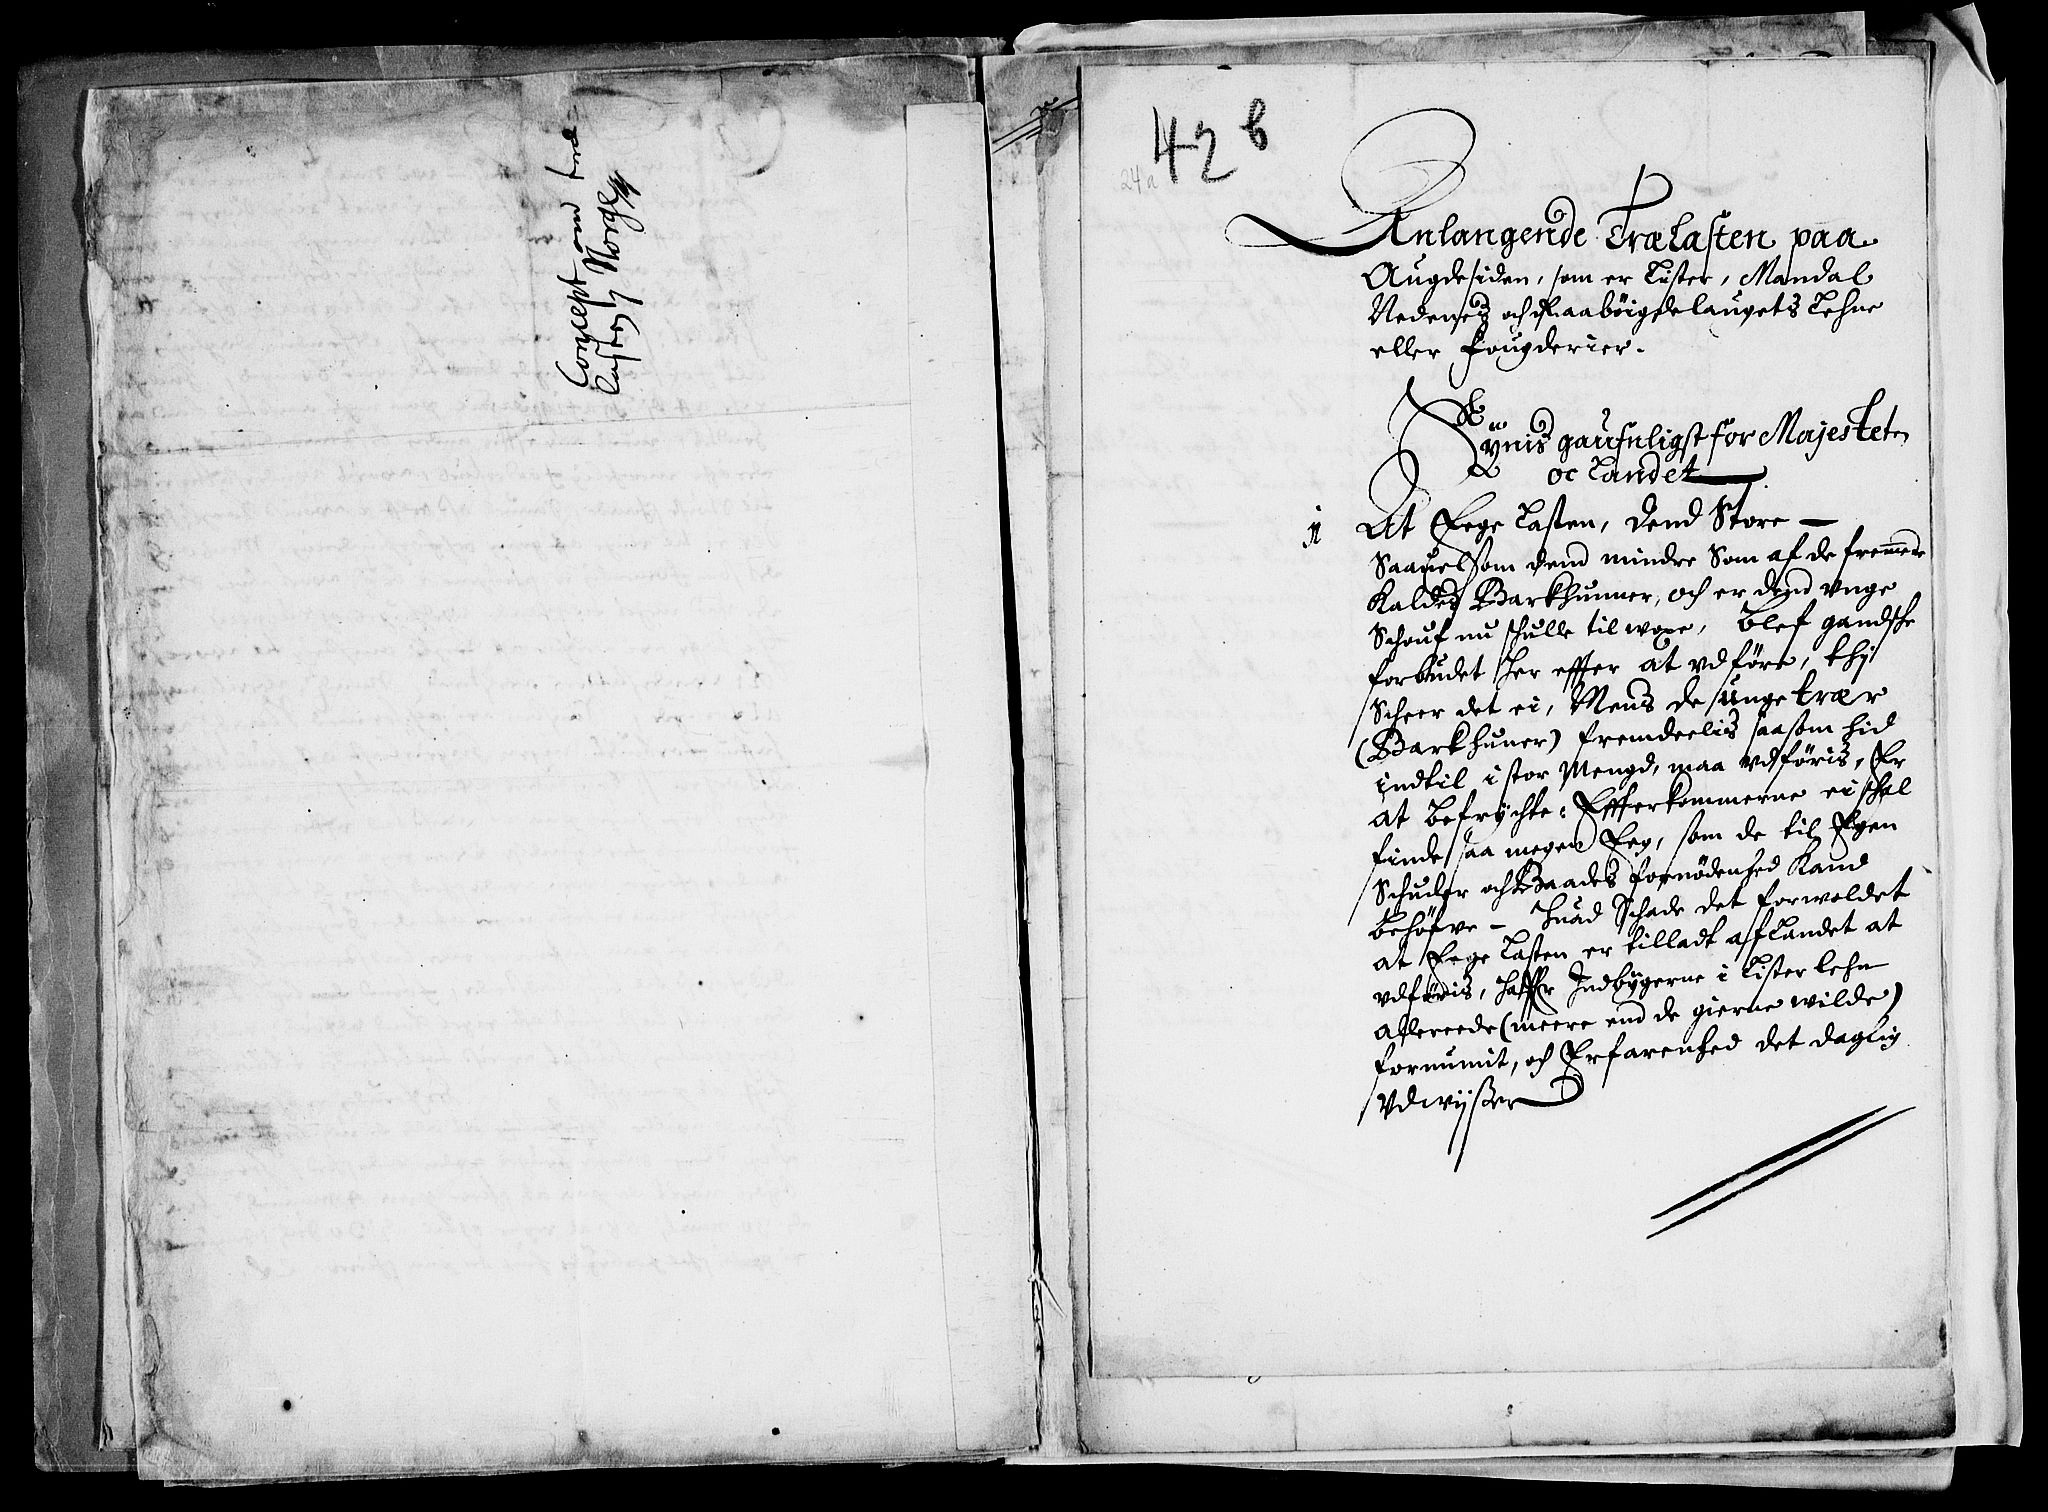 Concept om træ=
lasten J Norge
42 b
24 a
Anlangende Trælasten paa
Augdesiden, som er Lister, Mandal
Nedenes och Raaböigdelaugets Lehne
eller Fougderier.
Sÿnis gaufnligst for Majesteten
oc Landet
1 At Eege Lasten, dend Store
Saauelsom dend mindre Som af de fremmede
Kaldes Barkhunner, och er dend vnge
Schouf nu schulle tilwoxe, blef gandsche
forbudet her effter at vdföre, thj
Scheer det ei, Mens de unge træer
(Barkhuner) fremdeelis saasom hid
indtil i stor Mengd, maa vdföris, Er
at befrÿchte: Effterkommerne ei schal
finde saa megen Eeg, som de til Egen
Schuder och Baades fornödenhed Kand
behöfve - Huad Schade det forwoldet
at Eege Lasten er tilladt af Landet at
vdföris, haffr Indbÿgerne i Lister lehn
allereede (meere end de gierne wilde)
fornumit, och Erfarenhed det daglig
vdwijser